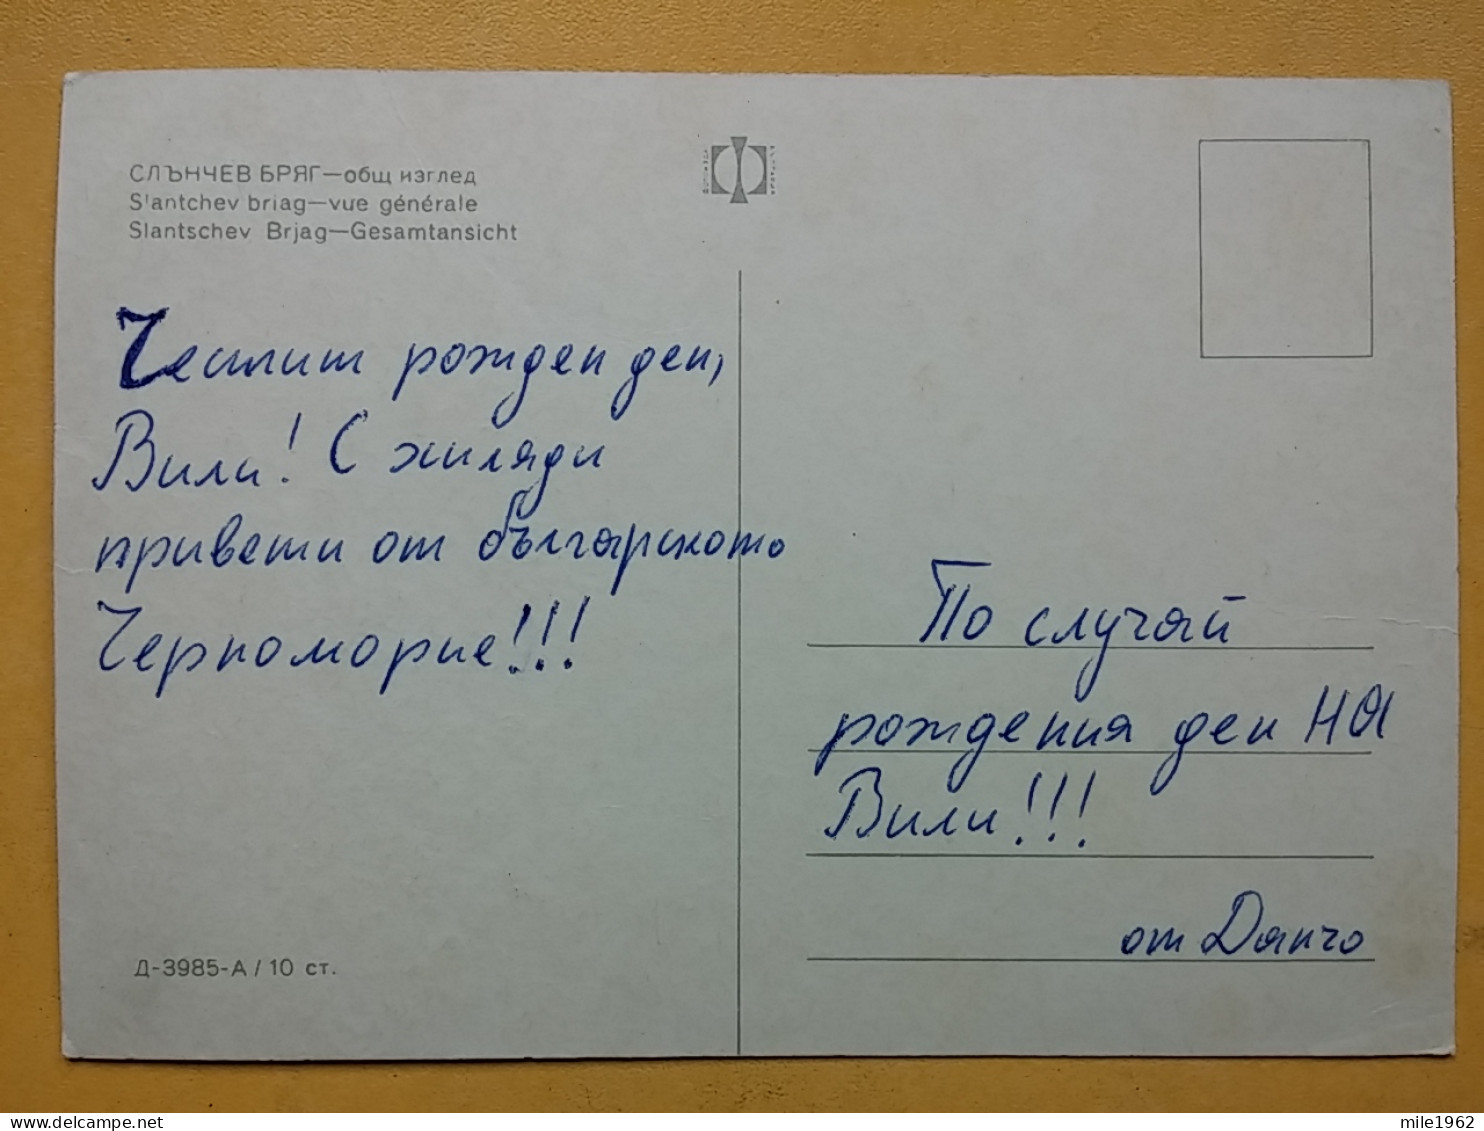 СЛЪНЧЕВ БРЯГ—общ изглед
S'antchev briag—vue générale
Slantschev Brjag—Gesamtansicht
Честит рожден ден,
Вили! С хиляди
привети от българското
Черноморие!!!
По случай
рождения ден на
Вили!!!
от Данчо
Д-3985-А / 10 ст.
mile1962